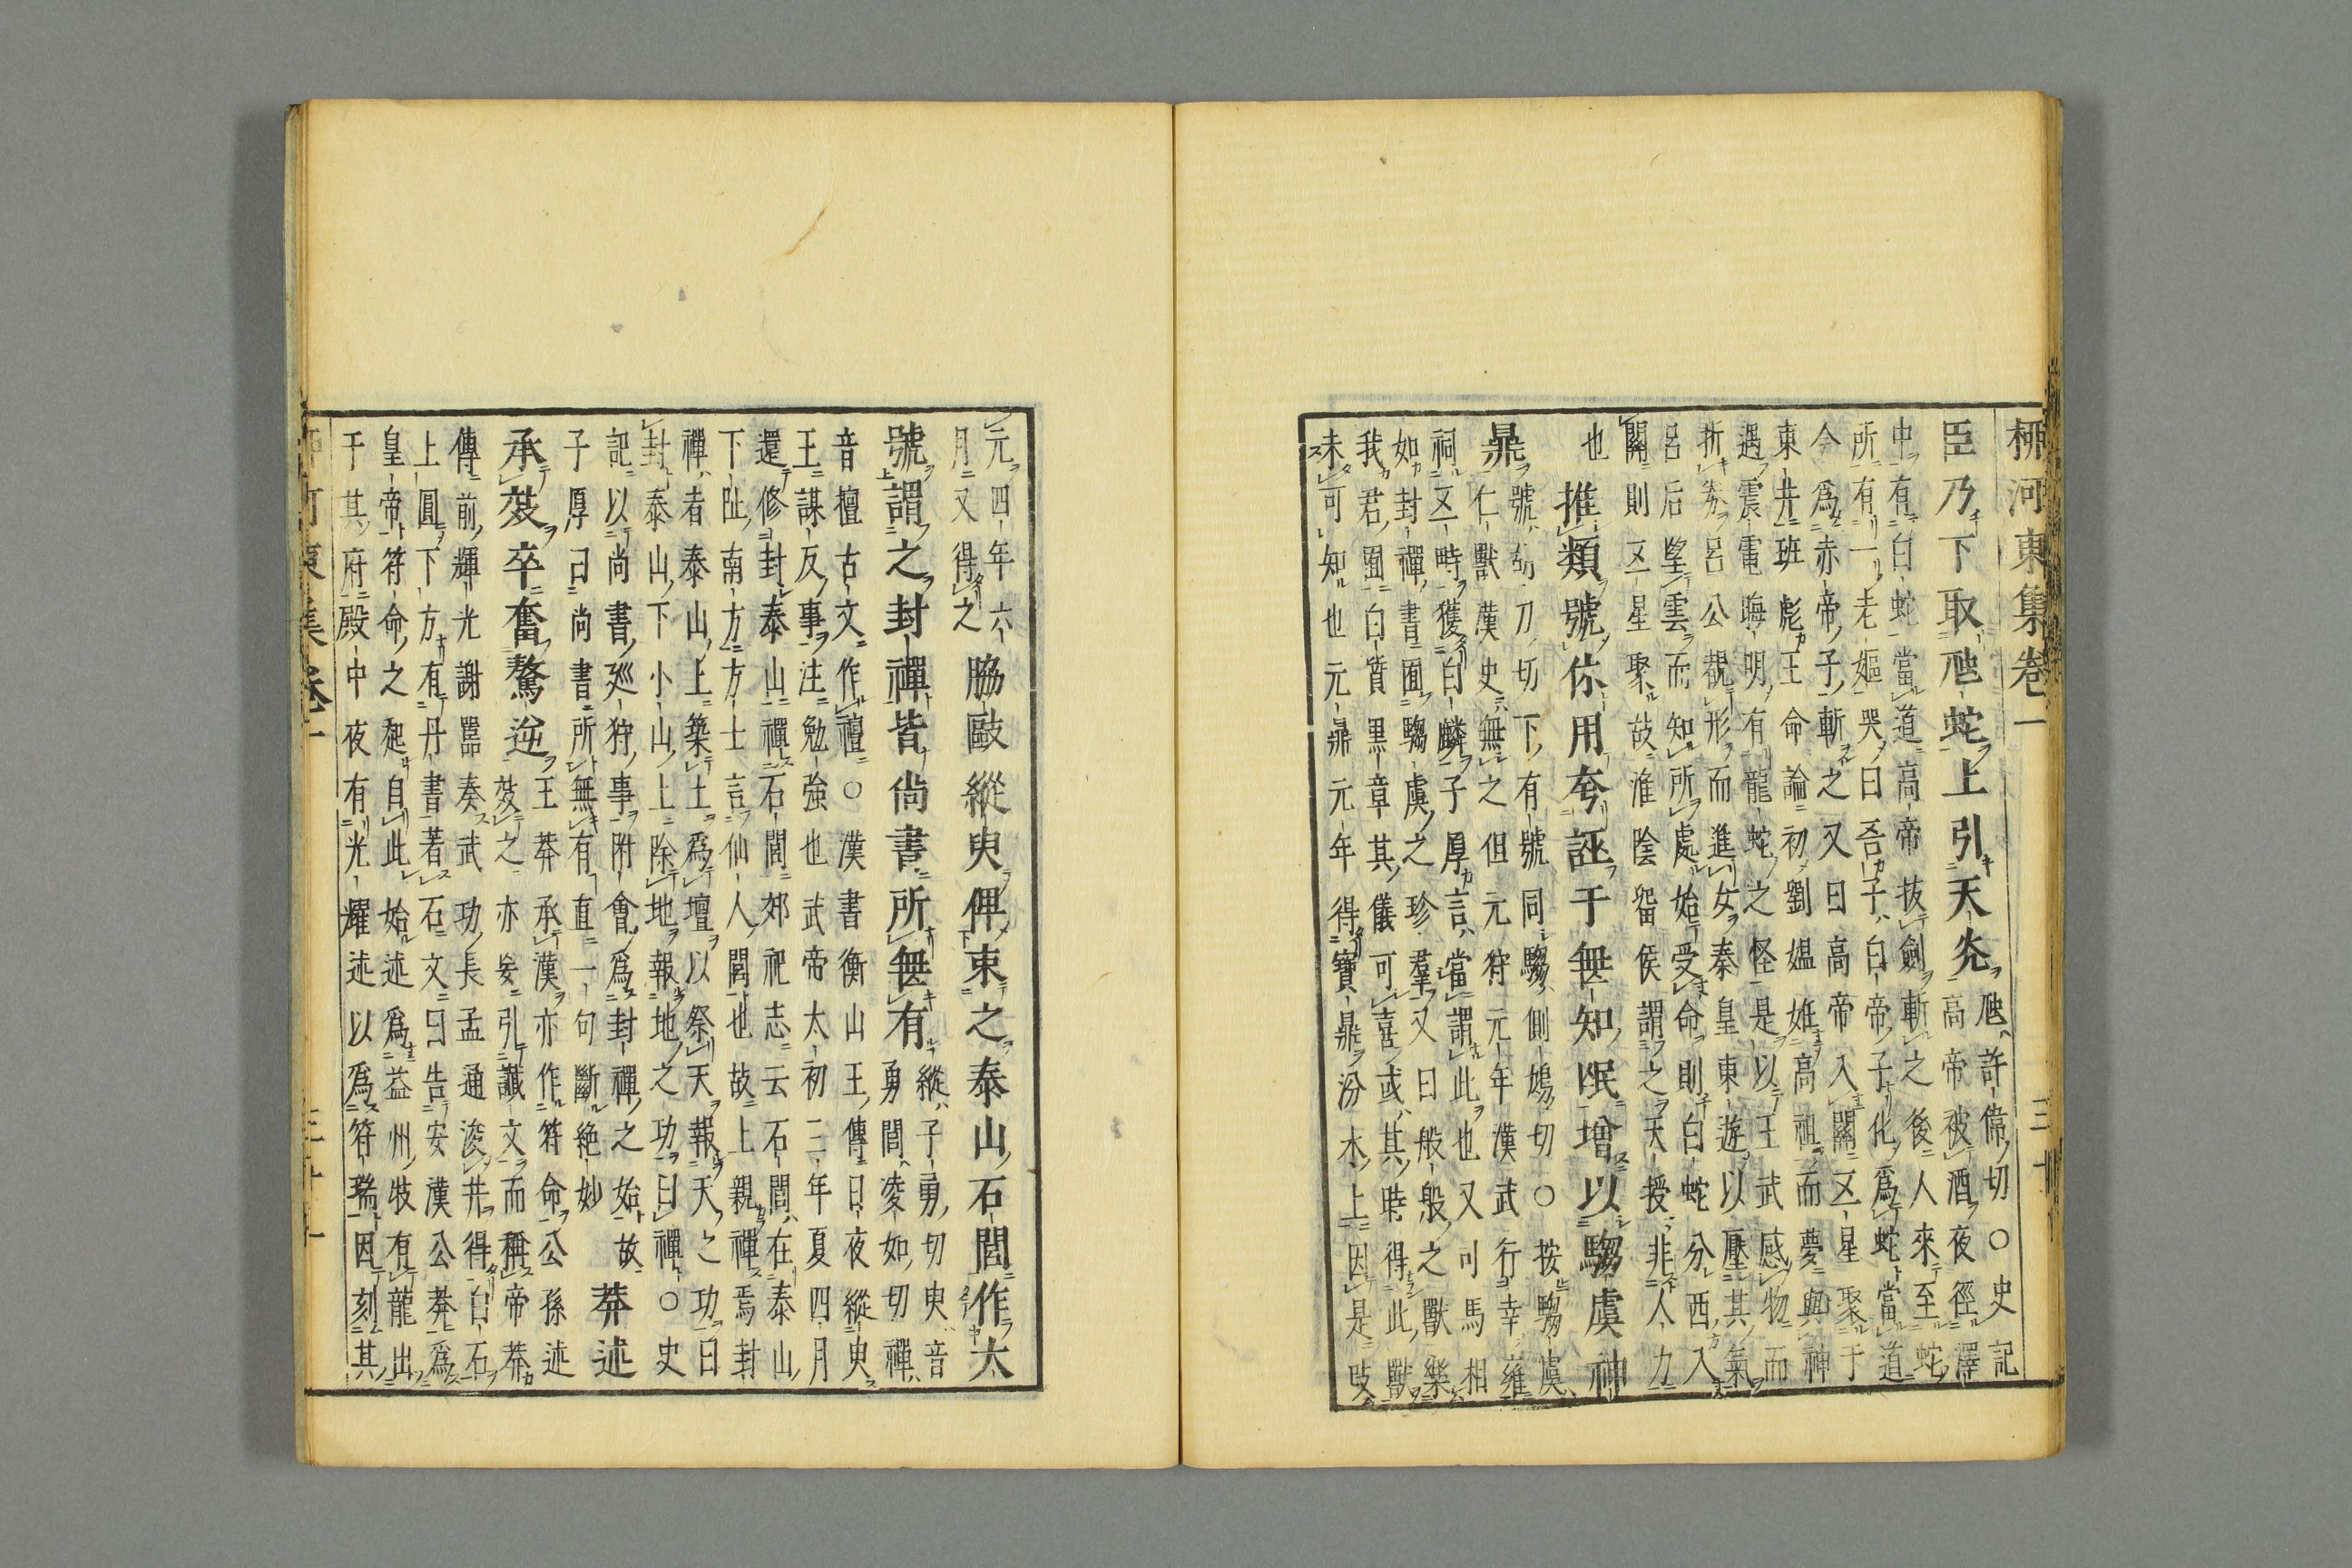 柳河東集卷一 三十
臣乃下取虺蛇上引天光 虺許偉切○史記
高帝被酒夜徑澤
中有白蛇當道高帝拔劍斬之後人來至蛇
所有一老嫗哭曰吾子白帝子化爲蛇當道
今爲赤帝子斬之又曰高帝入關五星聚于
東井班彪王命論初劉媼姙高祖而夢與神
遇震電晦明有龍蛇之怪是以王武感物而
折券呂公覩形而進女秦皇東遊以壓其氣
呂后望雲而知所處始受命則白蛇分西入
關則五星聚故淮陰留侯謂之天授非人力
也 推類號休用夸誣于無知氓增以騶虞神
鼎 號胡刀切下有號同騶側鳩切○按騶虞
仁獸漢史無之但元狩元年漢武行幸雍
祠五畤獲白麟子厚言當謂此也又司馬相
如封禪書囿騶虞之珍羣又曰般般之獸樂
我君囿白質黑章其儀可喜或其時得此獸
未可知也元鼎元年得寶鼎汾水上因是改
元四年六
月又得之 脇敺縱臾俾東之泰山石閭作大
號謂之封禪皆尚書所無有 縱子勇切臾音
勇閭凌如切禪
音檀古文作䄠○漢書衡山王傳日夜縱臾
王謀反事注勉強也武帝太初三年夏四月
還修封泰山禪石閭郊祀志云石閭在泰山
下阯南方方士言仙人閭也故上親禪焉封
禪者泰山上築土爲壇以祭天報天之功曰
封泰山下小山上除地報地之功曰禪○史
記以尚書廵狩事附會爲封禪之始故
子厚曰尚書所無有直一句斷絶妙 莽述
承效卒奮驁逆 王莽承漢亦作符命公孫述
效之亦妄引讖文而稱帝莽
傳前輝光謝囂奏武功長孟通浚井得白石
上圓下方有丹書著石文曰告安漢公莽爲
皇帝符命之起自此始述爲益州牧有龍出
于其府殿中夜有光耀述以爲符瑞因刻其